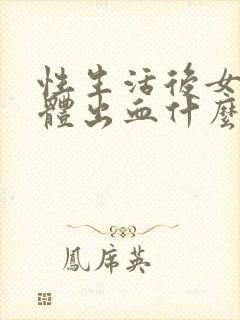 性生活後女
體出血什麼
鳳席英